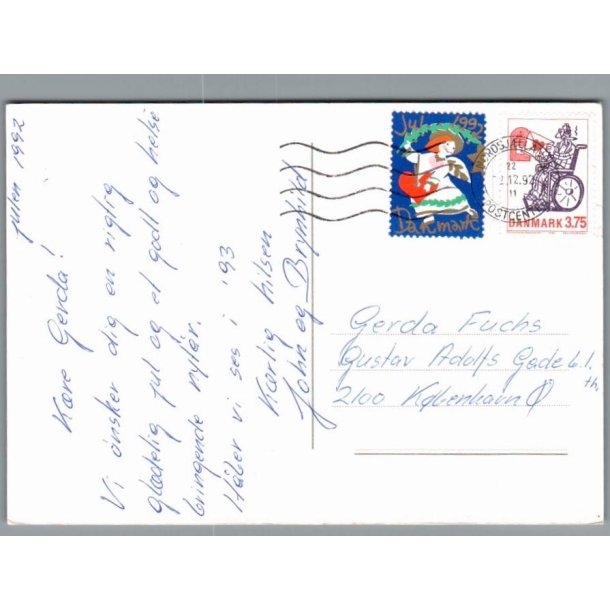 julen 1992
Kære Gerda!
Vi ønsker dig en rigtig
glædelig jul og et godt og helse
bringende nytår.
Håber vi ses i '93
Kærlig hilsen
John og Brynhild
Jul 1992
Danmark
NORDSJÆLLANDS
22
.12.92
11
POSTCENTER
DANMARK 3.75
Gerda Fuchs
Gustav Adolfs Gade 6.1.
th,
2100 København Ø